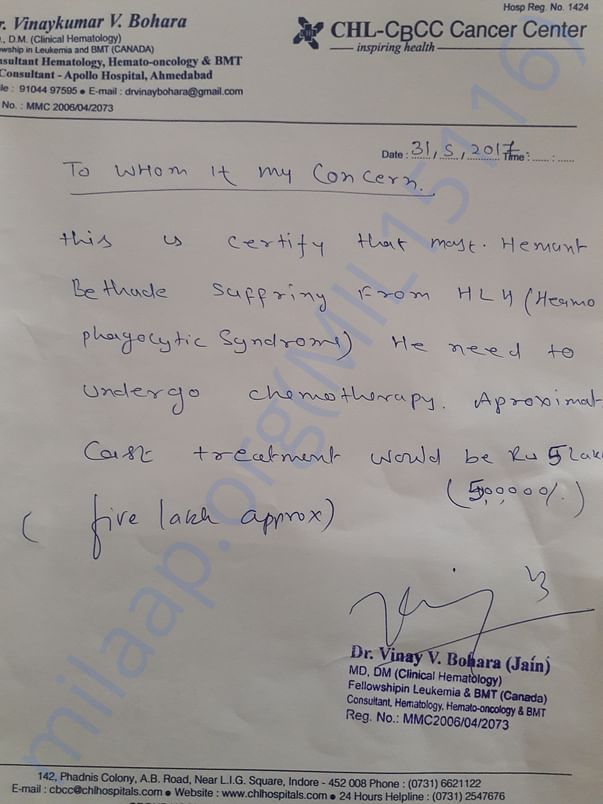 Hosp Reg. No. 1424
r. Vinaykumar V. Bohara
., D.M. (Clinical Hematology)
owship in Leukemia and BMT (CANADA)
nsultant Hematology, Hemato-oncology & BMT
Consultant - Apollo Hospital, Ahmedabad
ile : 91044 97595 ● E-mail : drvinaybohara@gmail.com
. No. : MMC 2006/04/2073
CHL-CBCC Cancer Center
inspiring health
Date : 31, 5, 2017 Time : ...... : ......
To whom It my Concern.
this is certify that mast. Hemant
Bethade suffring From HLH (Heamo
phagocytic Syndrome) He need to
undergo chemotherapy. Aproximat
Cost treatment would be Rs 5 lak
(5,00,000/.)
( five lakh approx)
Dr. Vinay V. Bohara (Jain)
MD, DM (Clinical Hematology)
Fellowshipin Leukemia & BMT (Canada)
Consultant, Hematology, Hemato-oncology & BMT
Reg. No.: MMC2006/04/2073
milaap.org(MIL15116)
142, Phadnis Colony, A.B. Road, Near L.I.G. Square, Indore - 452 008 Phone : (0731) 6621122
E-mail : cbcc@chlhospitals.com ● Website : www.chlhospitals.com ● 24 Hours Helpline : (0731) 2547676